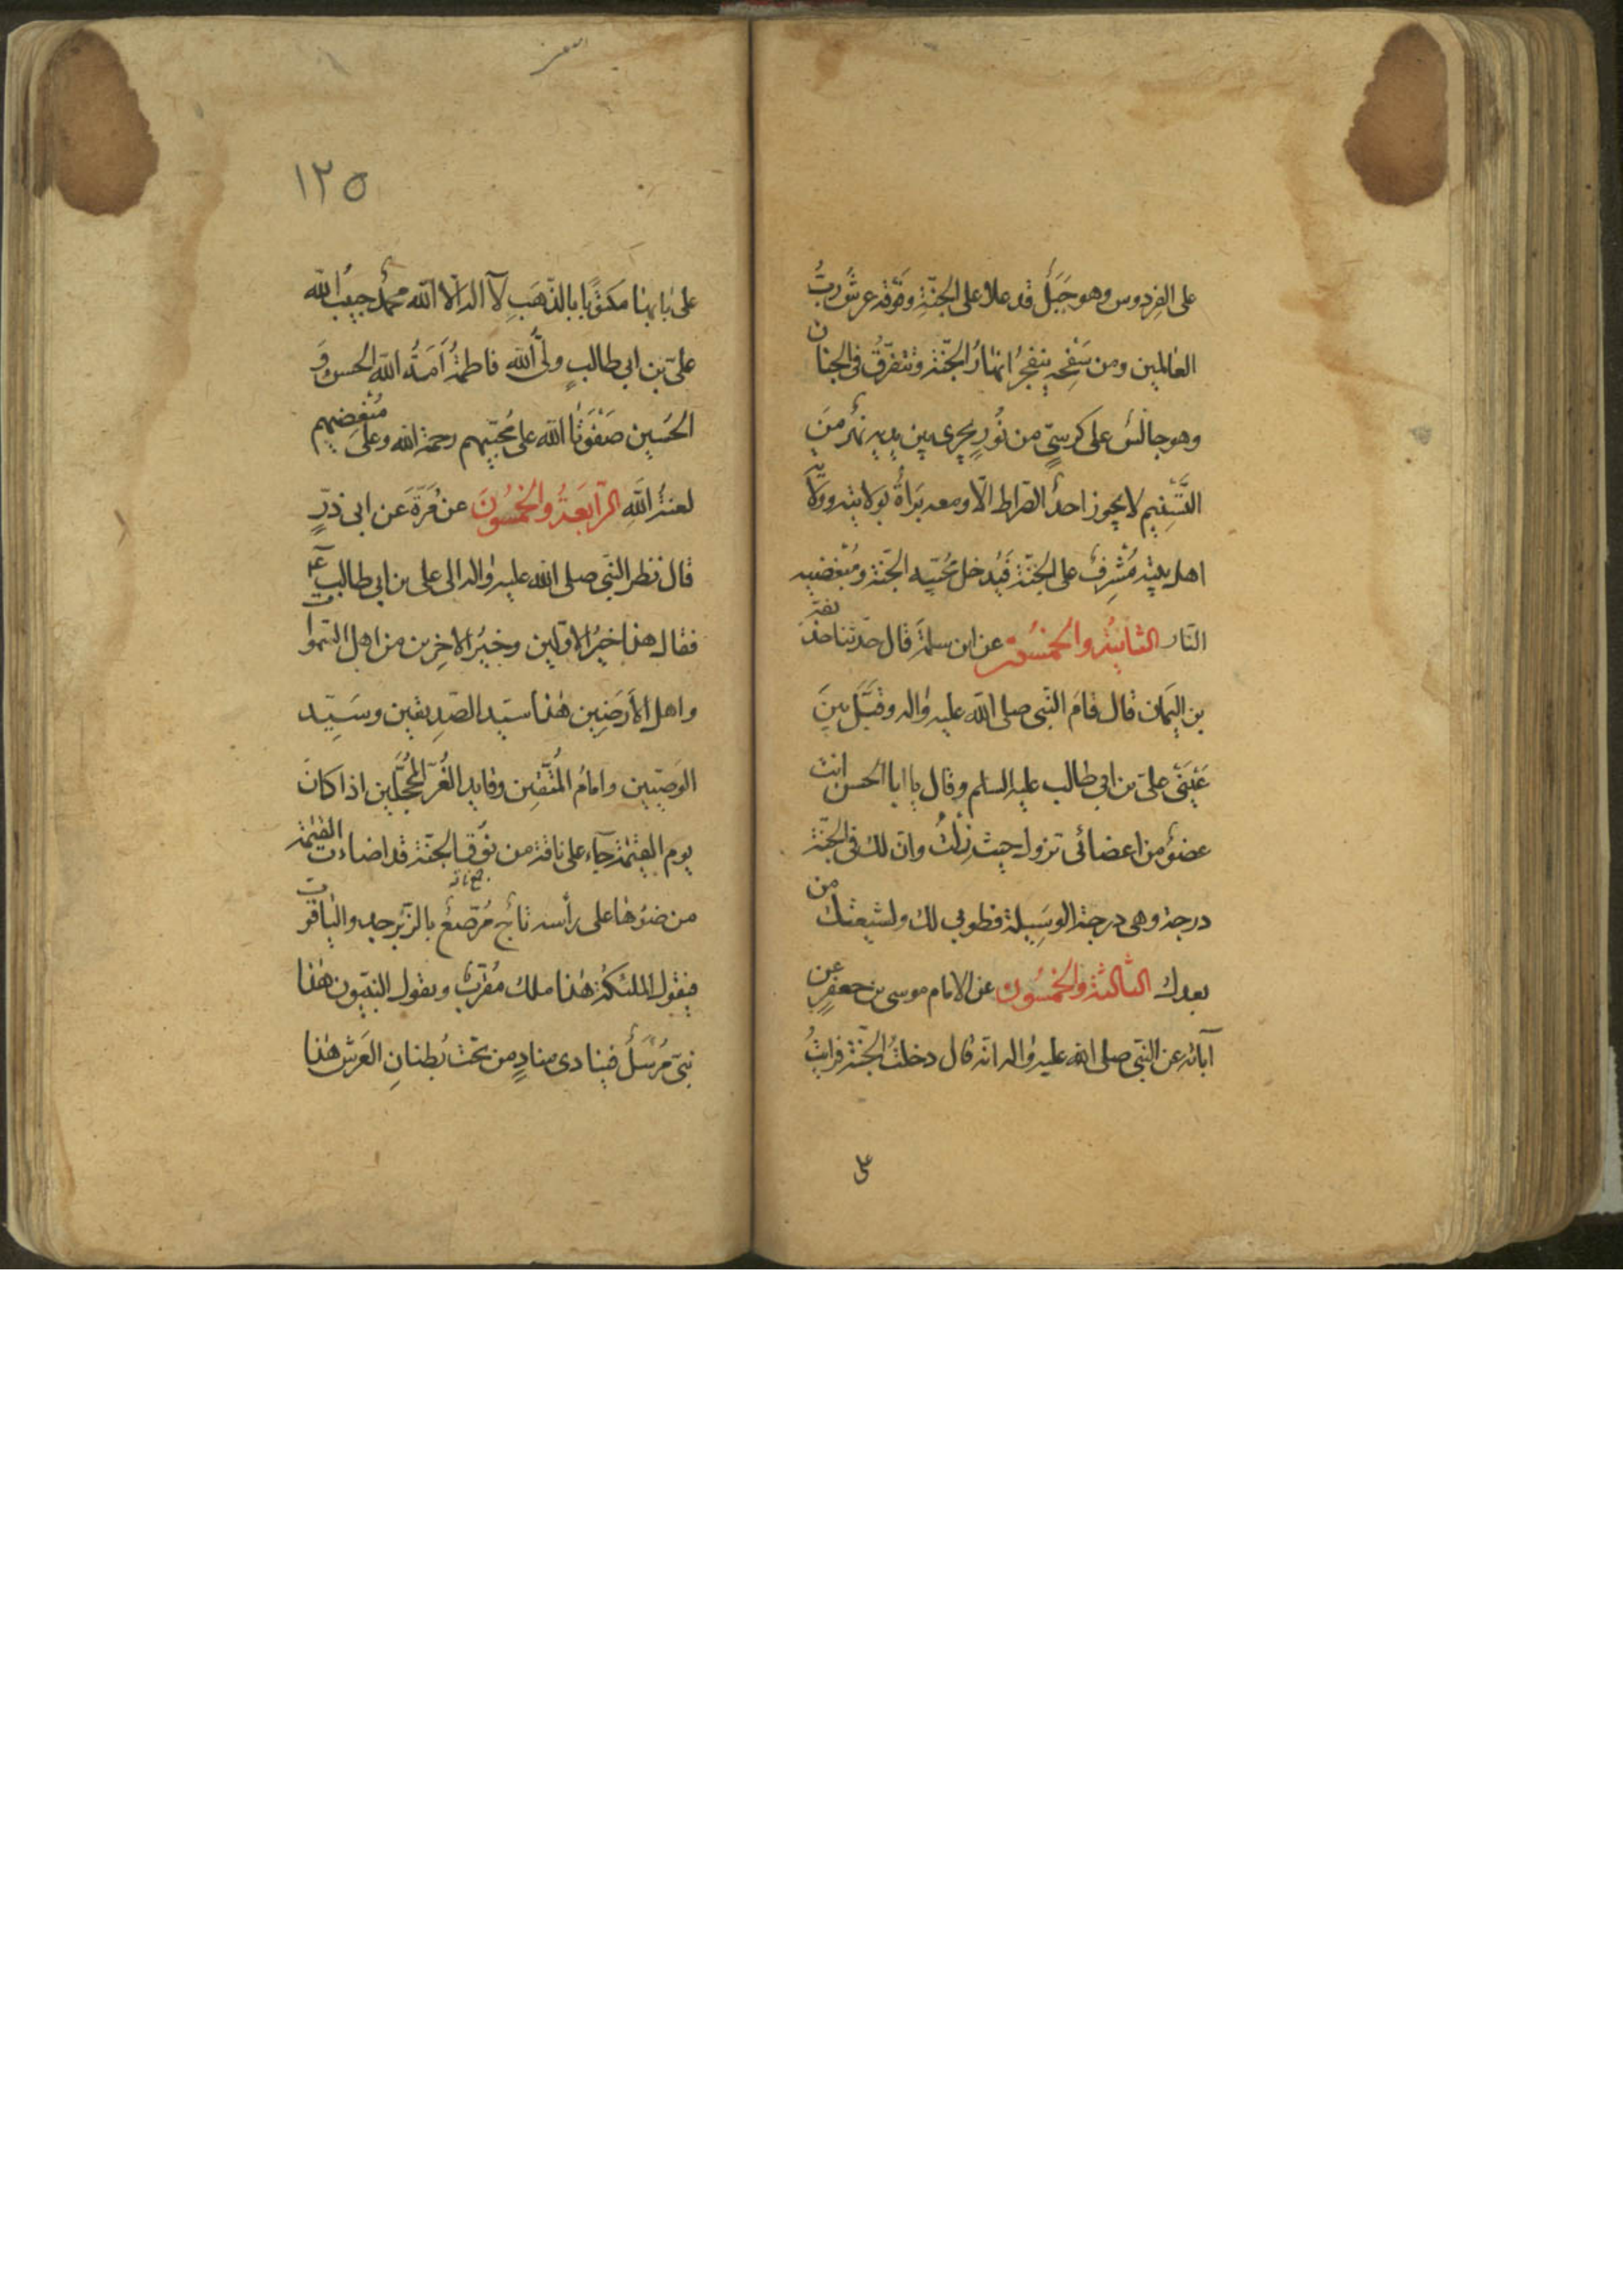 على الفِردوس وهو جَبَلٌ قد علا على الجنّةِ وفَوْقه عرشُ ربّ
العالمين ومن سَفْحِه ينفجرُ انهارُ الجنّة وتتفرّقُ فى الجنان
وهو جالسٌ على كرسىٍّ من نُورٍ يجرى بين يديه نهرٌ مِنَ
التَّسْنِيم لا يجوز احدٌ الصّراط الّا ومعه بَرَاةٌ بولايته وولاية
اهل بيته مُشْرِفٌ على الجنّة فيُدخل مُحبّيه الجنّة ومُبْغضيه
النّار الثانيةُ والخمسُون عن ابن سلمةَ قال حدّثنا حذيفة
بن اليَمان قال قامَ النّبى صلى الله عليه واله وقَبَّلَ بينَ
عَيْنَىْ علىّ بن ابى طالب عليه السلم وقال يا ابا الحسن انت
عضوٌ من اعضائى تزول حيث زلتُ وانّ لك فى الجنّة
درجة وهى درجة الوسِيلة فطوبى لك ولشيعتك من
بعدك الثالثة والخمسُون عن الامام موسى بن جعفرٍ عن
آبائه عن النّبى صلى الله عليه واله انّه قال دخلتُ الجنّة فرايتُ
على
١٢٥
على بابها مكتوبًا بالذّهَبِ لآ اله الّا الله محمّدٌ حبيبُ الله
علىّ بن ابى طالبٍ ولىُّ الله فاطمةُ اَمَةُ الله الحسن وَ
الحُسين صَفْوَتا الله على مُحبّيهم رحمة الله وعلى مُبْغضيهم
لعنةُ اللهِ الرّابعَةُ والخمسُونَ عن مُرّةَ عَن ابى ذرّ
قال نظر النّبى صلى الله عليه واله الى على بن ابى طالب ع
فقال هذا خيرُ الاوّلين وخيرُ الاخِرين من اهل السّموات
واهل الاَرَضِين هٰذا سيّد الصّدِيقين وسَيّد
الوَصيّين وامامُ المُتّقين وقايد الغُرّ المُحجّلين اذا كانَ
يوم القيٰمة جآء على ناقة من نُوق الجنّة قد اضاءت القيٰمة
من ضوئها على رأسه تاجٌ مُرصّعٌ بالزّبَرجد والياقوت
فيقول الملئكة هٰذا ملك مُقرّب ويقول النبيّون هٰذا
نبىّ مُرْسَلٌ فينادى منادٍ من تحت بُطنانِ العَرش هٰذا